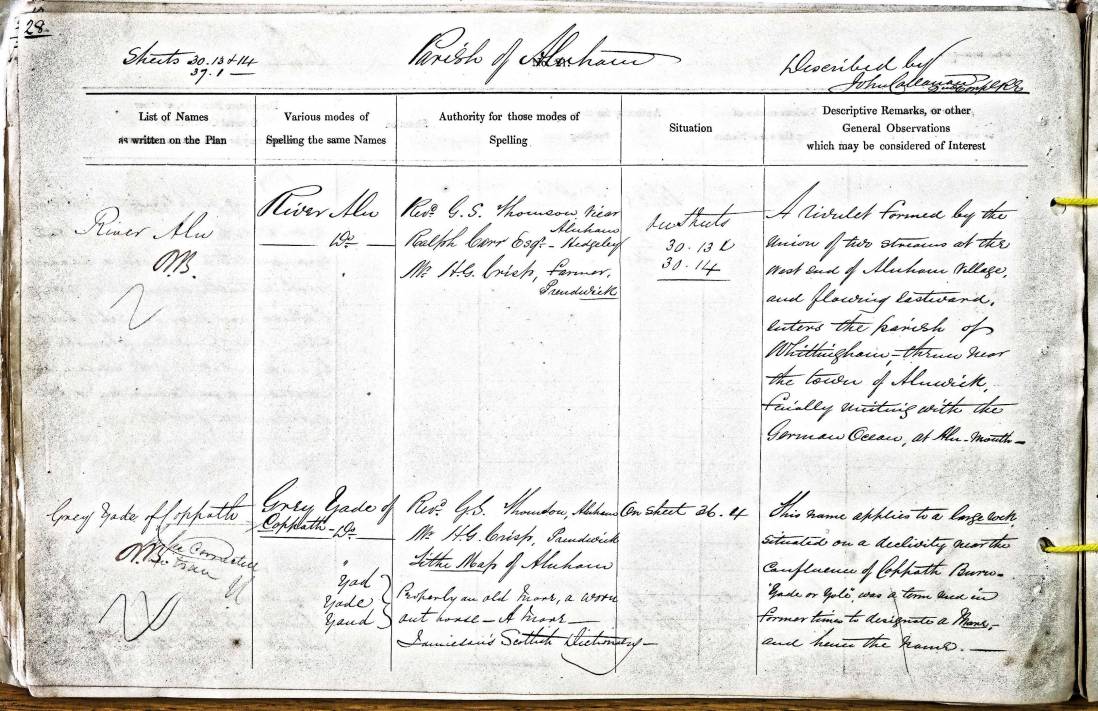 28.
Sheets 30.13 & 14
37.1
Parish of Alnham
Described by
John Callanan
List of Names
as written on the Plan
Various modes of
Spelling the same Names
Authority for those modes of
Spelling
Situation
Descriptive Remarks, or other
General Observations
which may be considered of Interest
River Aln
River Aln
Do
Revd. G. S. Thomson, Vicar
Alnham
Ralph Carr Esqr. - Hedgeley
Mr. H.G. Crisp, Farmer,
Prendwick
On Sheets
30.13 &
30.14
A rivulet formed by the
Union of two streams at the
West End of Alnham Village,
and flowing Eastward,
Enters the parish of
Whittingham, - thence near
the town of Alnwick,
finally uniting with the
German Ocean, at Aln-Mouth -
Grey Yade of Coppath
Grey Yade of
Coppath - Do
"
Yad
Yade
Yaud
Revd. G.S. Thomson, Alnham
Mr. H.G. Crisp, Prendwick
Tithe Map of Alnham
Properly an old Mare, a worn
out horse - A Mare -
Jamieson's Scottish Dictionary -
On Sheet 36.4
This name applies to a large rock
situated on a declivity near the
Confluence of Coppath Burn -
was a term used in
former times to designate a Mare, -
and hence the Name. -